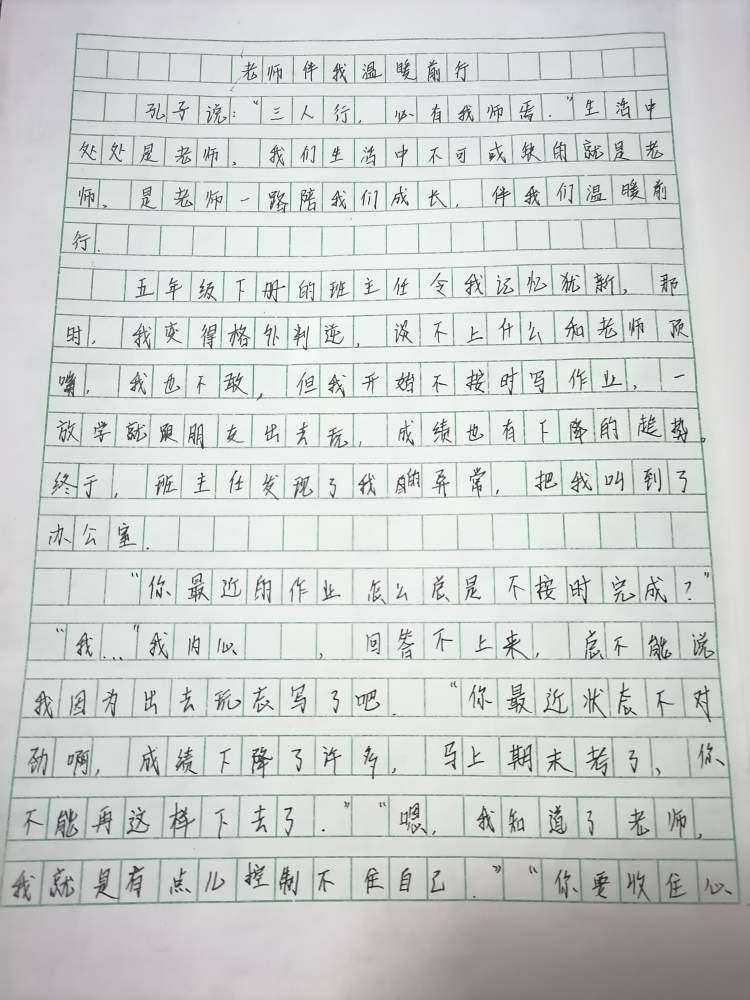 老师伴我温暖前行
孔子说：“三人行，必有我师焉．”生活中
处处是老师、我们生活中不可或缺的就是老
师、是老师一路陪我们成长，伴我们温暖前
行．
五年级下册的班主任令我记忆犹新、那
时，我变得格外判逆，谈不上什么和老师顶
嘴，我也不敢，但我开始不按时写作业、一
放学就跟朋友出去玩，成绩也有下降的趋势。
终于，班主任发现了我的异常，把我叫到了
办公室．
“你最近的作业怎么总是不按时完成？”
“我...”我内心 ，回答不上来，总不能说
我因为出去玩忘写了吧．“你最近状态不对
劲啊，成绩下降了许多，马上期末考了、你
不能再这样下去了．”“嗯，我知道了老师，
我就是有点儿控制不住自己．”“你要收住心